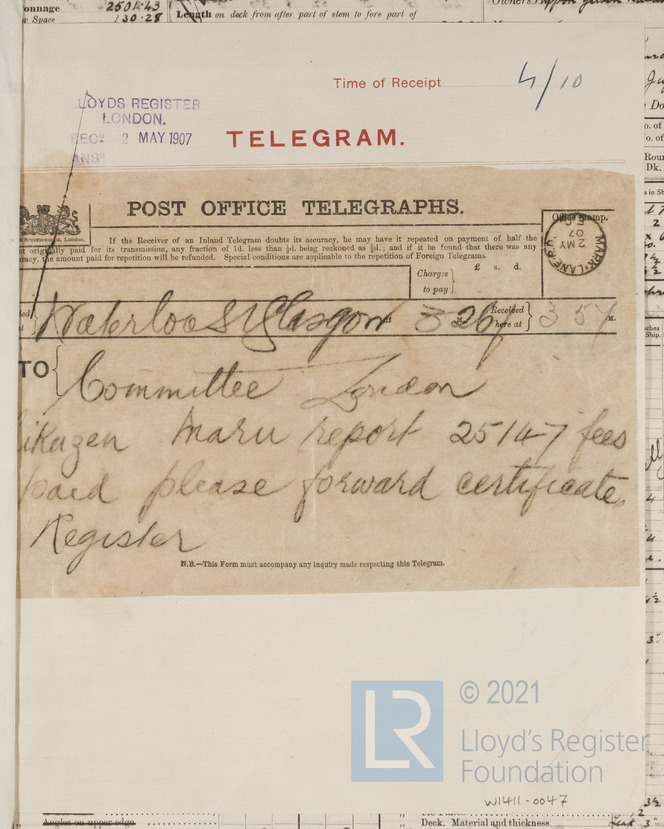 onnage 2501.43
Length on deck from after part of stem to fore part of
Space 130.28
Time of Receipt 4/10
LOYDS REGISTER
LONDON.
REC 2 MAY 1907
ANS
TELEGRAM.
POST OFFICE TELEGRAPHS.
Office Stamp.
MARK LANE B.O.
2 MY
07
If the Receiver of an Inland Telegram doubts its accuracy, he may have it repeated on payment of half the
originally paid for its transmission, any fraction of 1d. less than ½d. being reckoned as ½d.; and if it be found that there was any
racy, the amount paid for repetition will be refunded. Special conditions are applicable to the repetition of Foreign Telegrams.
Charges
to pay
£ s. d.
Waterloo St Glasgow 3 26
Received
here at
3 57 M.
TO
Committee London
ikazen Maru report 25147 fees
paid please forward certificate
Register
N.B.—This Form must accompany any inquiry made respecting this Telegram.
LR
© 2021
Lloyd's Register
Foundation
W1411-0047
Angles on upper edge
Deck. Material and thickness